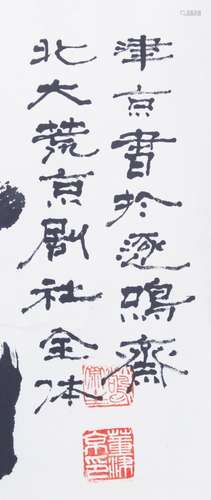 津京書於逐鳴齋
北大荒京剧社全体
董津京印